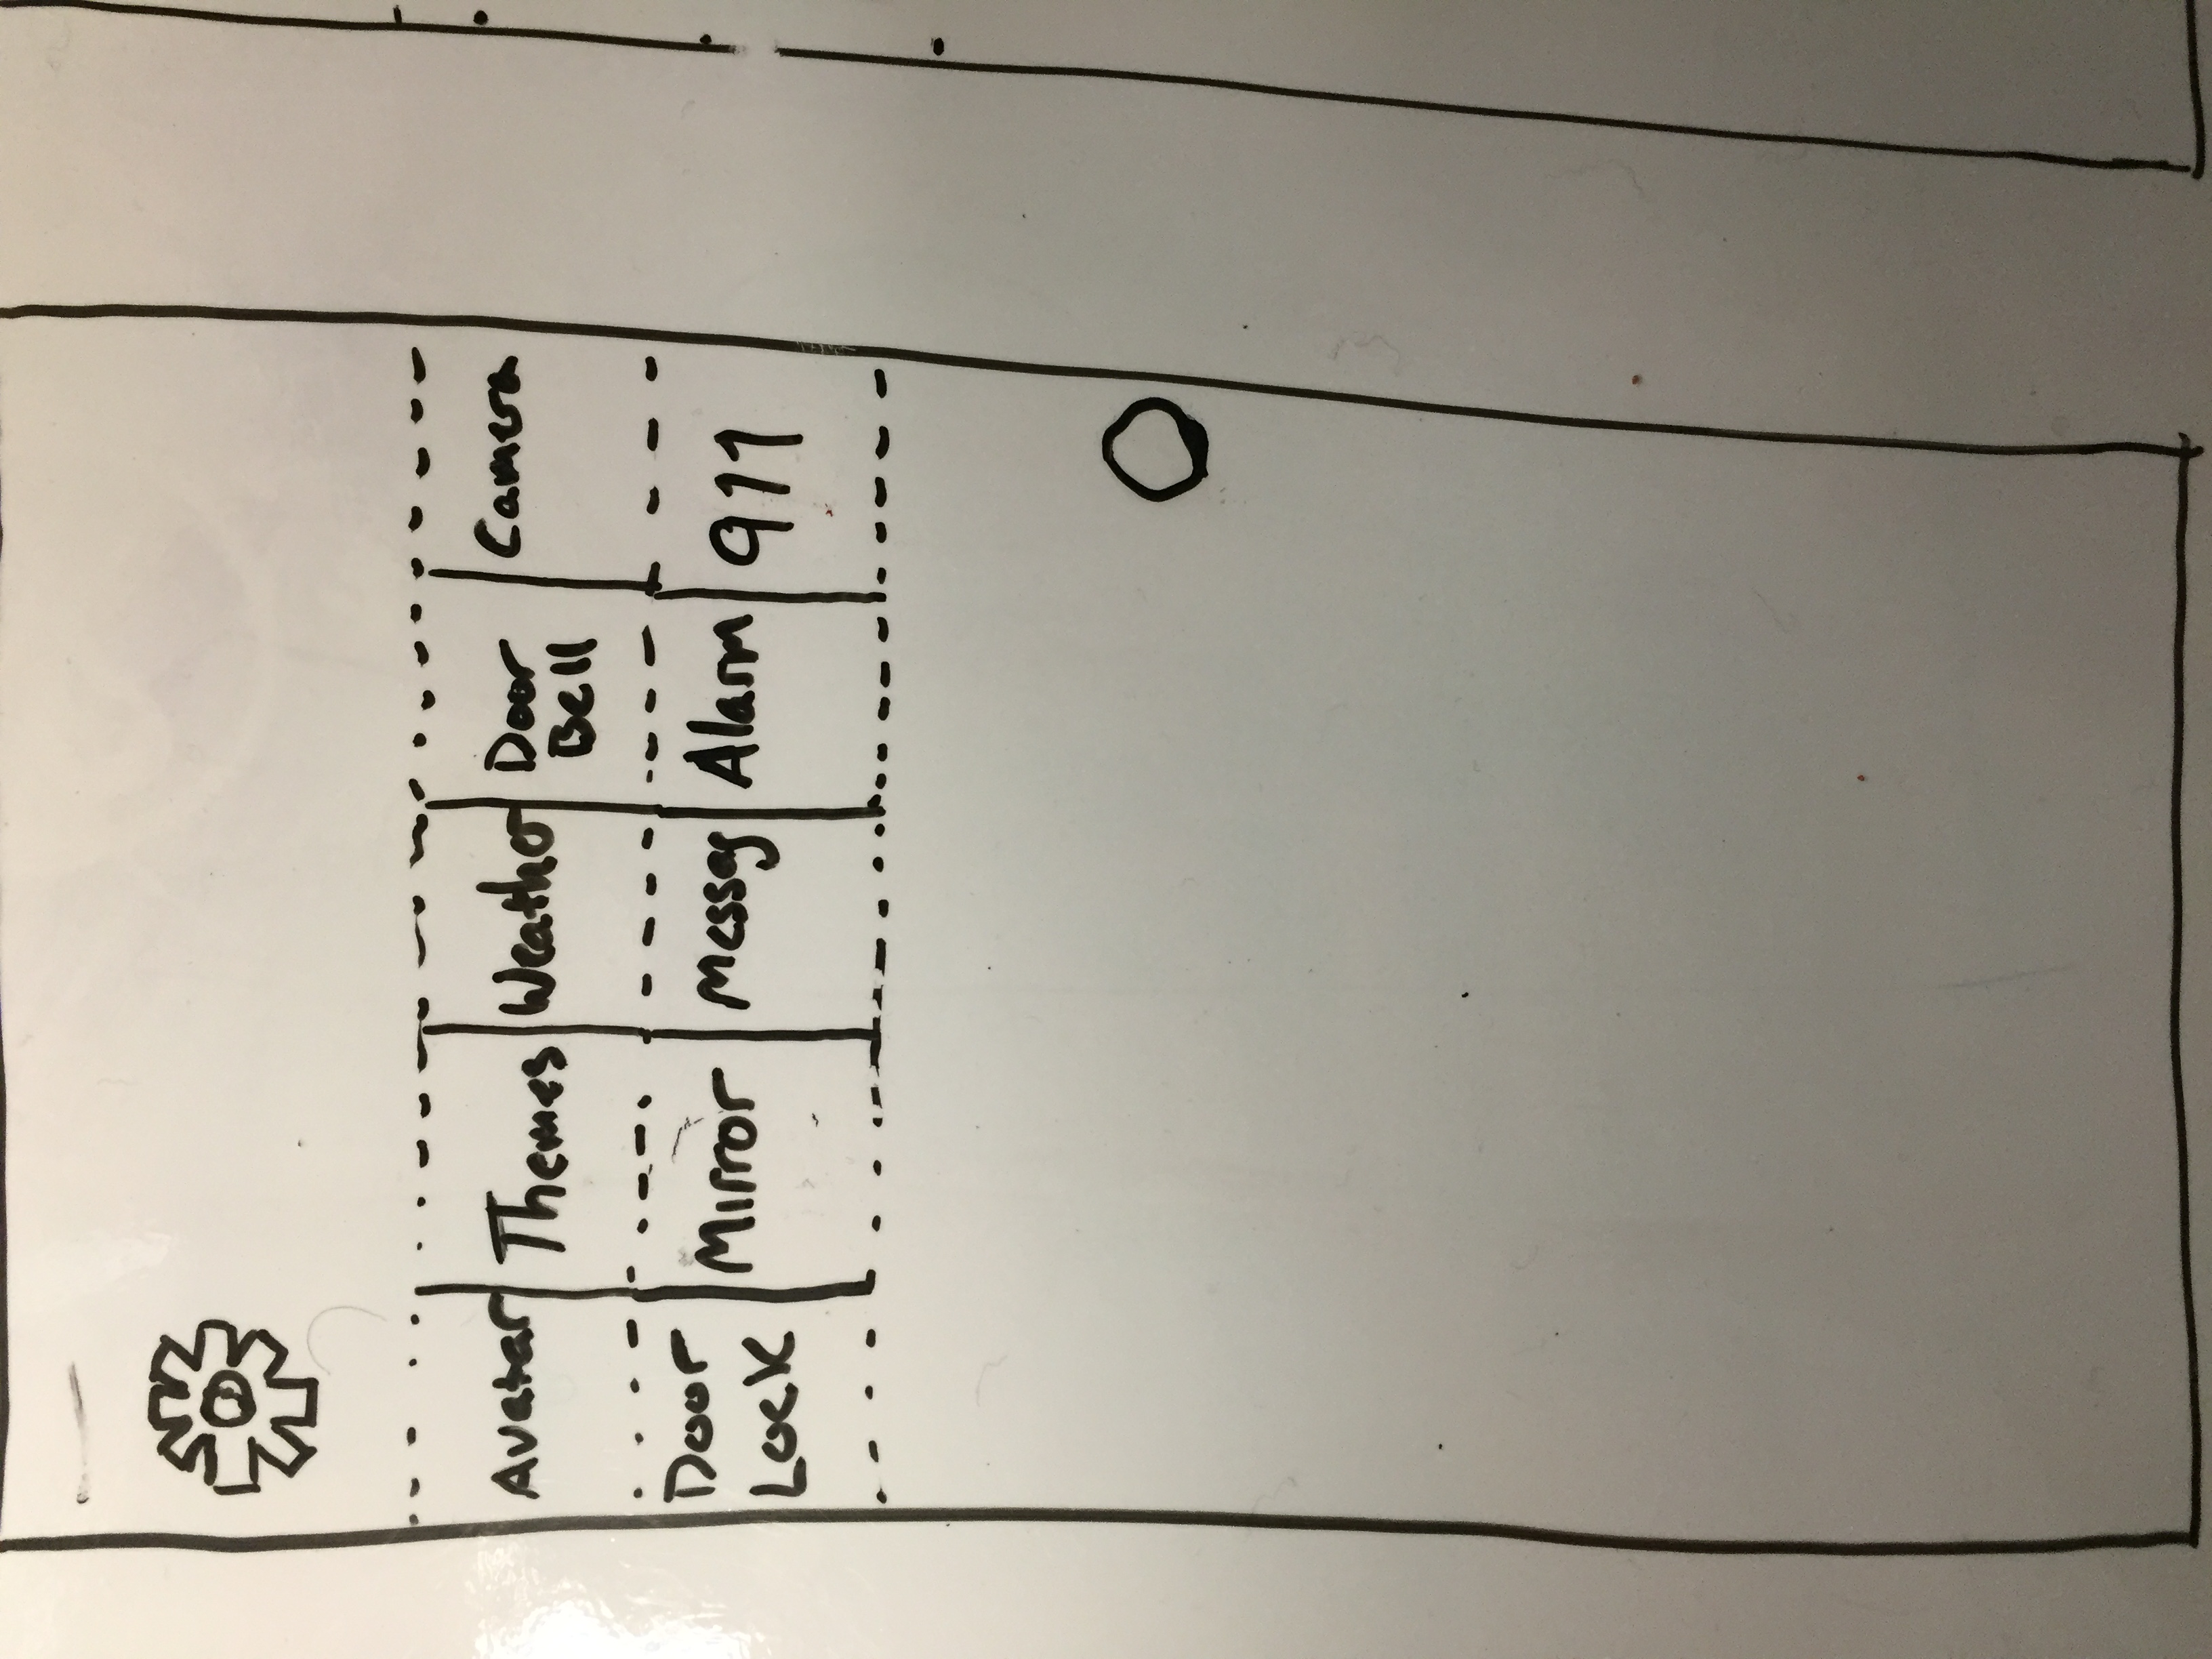 Avatar Themes Weather Door Bell Camera
Door Lock Mirror Messag Alarm 911